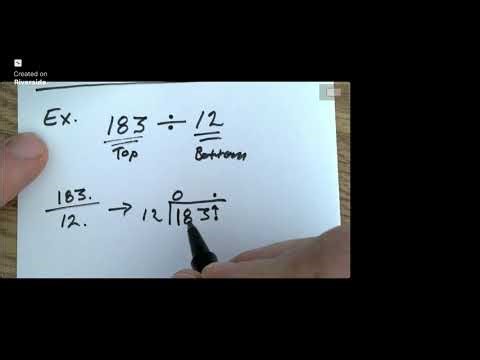 Created on
Riverside
Ex. 183 ÷ 12
Top Bottom
183. 0 .
12. → 12 183